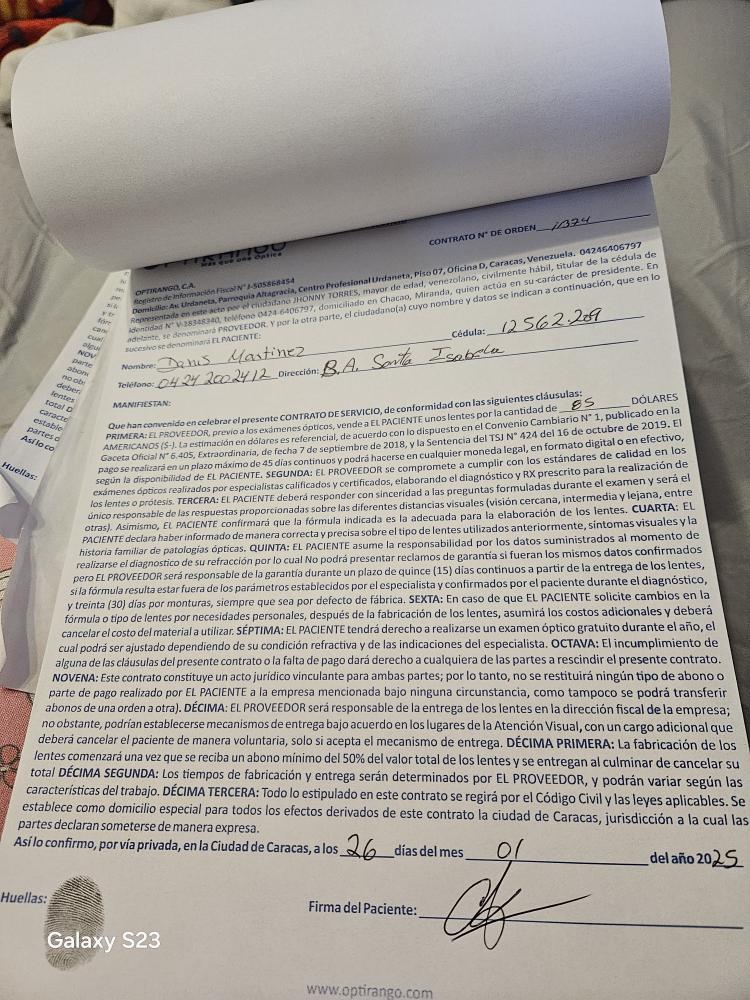 CONTRATO N° DE ORDEN
Más que una Óptica
OPTIRANGO, C.A.
Registro de Información Fiscal N° J-505868454
Domicilio: Av. Urdaneta, Parroquia Altagracia, Centro Profesional Urdaneta, Piso 07, Oficina D, Caracas, Venezuela. 04246406797
Representada en este acto por el ciudadano JHONNY TORRES, mayor de edad, venezolano, civilmente hábil, titular de la cédula de
identidad N° V-28348340, teléfono 0424-6406797, domiciliado en Chacao, Miranda, quien actúa en su carácter de presidente. En
adelante, se denominará PROVEEDOR. Y por la otra parte, el ciudadano(a) cuyo nombre y datos se indican a continuación, que en lo
sucesivo se denominará EL PACIENTE:
Nombre: Denis Martinez Cédula: 12562.209
Teléfono: 04242002412 Dirección: B.A. Santa Isabela
MANIFIESTAN:
Que han convenido en celebrar el presente CONTRATO DE SERVICIO, de conformidad con las siguientes cláusulas:
PRIMERA: EL PROVEEDOR, previo a los exámenes ópticos, vende a EL PACIENTE unos lentes por la cantidad de 85 DÓLARES
AMERICANOS ($-). La estimación en dólares es referencial, de acuerdo con lo dispuesto en el Convenio Cambiario N° 1, publicado en la
Gaceta Oficial N° 6.405, Extraordinaria, de fecha 7 de septiembre de 2018, y la Sentencia del TSJ N° 424 del 16 de octubre de 2019. El
pago se realizará en un plazo máximo de 45 días continuos y podrá hacerse en cualquier moneda legal, en formato digital o en efectivo,
según la disponibilidad de EL PACIENTE. SEGUNDA: EL PROVEEDOR se compromete a cumplir con los estándares de calidad en los
exámenes ópticos realizados por especialistas calificados y certificados, elaborando el diagnóstico y RX prescrito para la realización de
los lentes o prótesis. TERCERA: EL PACIENTE deberá responder con sinceridad a las preguntas formuladas durante el examen y será el
único responsable de las respuestas proporcionadas sobre las diferentes distancias visuales (visión cercana, intermedia y lejana, entre
otras). Asimismo, EL PACIENTE confirmará que la fórmula indicada es la adecuada para la elaboración de los lentes. CUARTA: EL
PACIENTE declara haber informado de manera correcta y precisa sobre el tipo de lentes utilizados anteriormente, síntomas visuales y la
historia familiar de patologías ópticas. QUINTA: EL PACIENTE asume la responsabilidad por los datos suministrados al momento de
realizarse el diagnostico de su refracción por lo cual No podrá presentar reclamos de garantía si fueran los mismos datos confirmados
pero EL PROVEEDOR será responsable de la garantía durante un plazo de quince (15) días continuos a partir de la entrega de los lentes,
si la fórmula resulta estar fuera de los parámetros establecidos por el especialista y confirmados por el paciente durante el diagnóstico,
y treinta (30) días por monturas, siempre que sea por defecto de fábrica. SEXTA: En caso de que EL PACIENTE solicite cambios en la
fórmula o tipo de lentes por necesidades personales, después de la fabricación de los lentes, asumirá los costos adicionales y deberá
cancelar el costo del material a utilizar. SÉPTIMA: EL PACIENTE tendrá derecho a realizarse un examen óptico gratuito durante el año, el
cual podrá ser ajustado dependiendo de su condición refractiva y de las indicaciones del especialista. OCTAVA: El incumplimiento de
alguna de las cláusulas del presente contrato o la falta de pago dará derecho a cualquiera de las partes a rescindir el presente contrato.
NOVENA: Este contrato constituye un acto jurídico vinculante para ambas partes; por lo tanto, no se restituirá ningún tipo de abono o
parte de pago realizado por EL PACIENTE a la empresa mencionada bajo ninguna circunstancia, como tampoco se podrá transferir
abonos de una orden a otra). DÉCIMA: EL PROVEEDOR será responsable de la entrega de los lentes en la dirección fiscal de la empresa;
no obstante, podrían establecerse mecanismos de entrega bajo acuerdo en los lugares de la Atención Visual, con un cargo adicional que
deberá cancelar el paciente de manera voluntaria, solo si acepta el mecanismo de entrega. DÉCIMA PRIMERA: La fabricación de los
lentes comenzará una vez que se reciba un abono mínimo del 50% del valor total de los lentes y se entregan al culminar de cancelar su
total DÉCIMA SEGUNDA: Los tiempos de fabricación y entrega serán determinados por EL PROVEEDOR, y podrán variar según las
características del trabajo. DÉCIMA TERCERA: Todo lo estipulado en este contrato se regirá por el Código Civil y las leyes aplicables. Se
establece como domicilio especial para todos los efectos derivados de este contrato la ciudad de Caracas, jurisdicción a la cual las
partes declaran someterse de manera expresa.
Así lo confirmo, por vía privada, en la Ciudad de Caracas, a los 26 días del mes 01 del año 2025
Huellas:
Firma del Paciente:
Galaxy S23
www.optirango.com
Huellas: